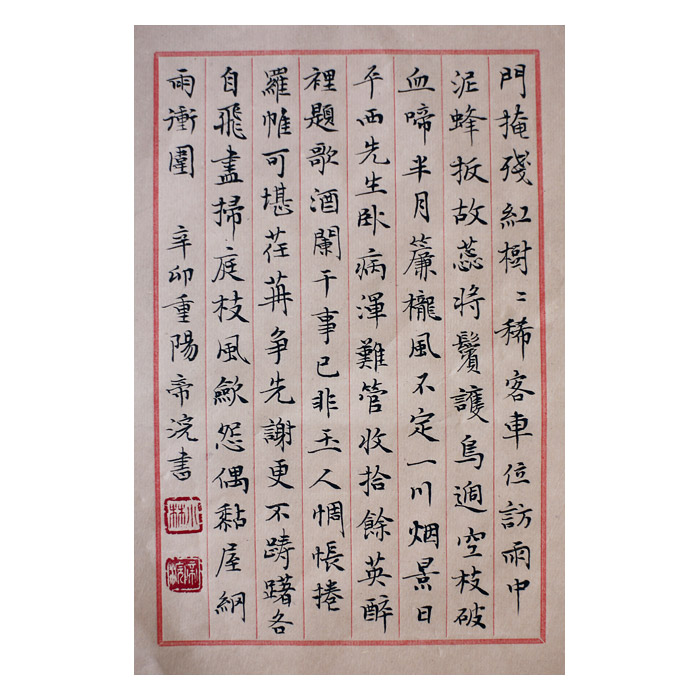 門掩殘紅樹〻稀客車位訪雨中
泥蜂扳故蕊將鬢護鳥迴空枝破
血啼半月簾櫳風不定一川烟景日
平西先生卧病渾難管收拾餘英醉
裡題歌酒闌干事已非玉人惆悵捲
羅帷可堪荏苒爭先謝更不躊躇各
自飛盡掃庭枝風歛怨偶黏屋網
雨衝圍 辛卯重陽帝浣書